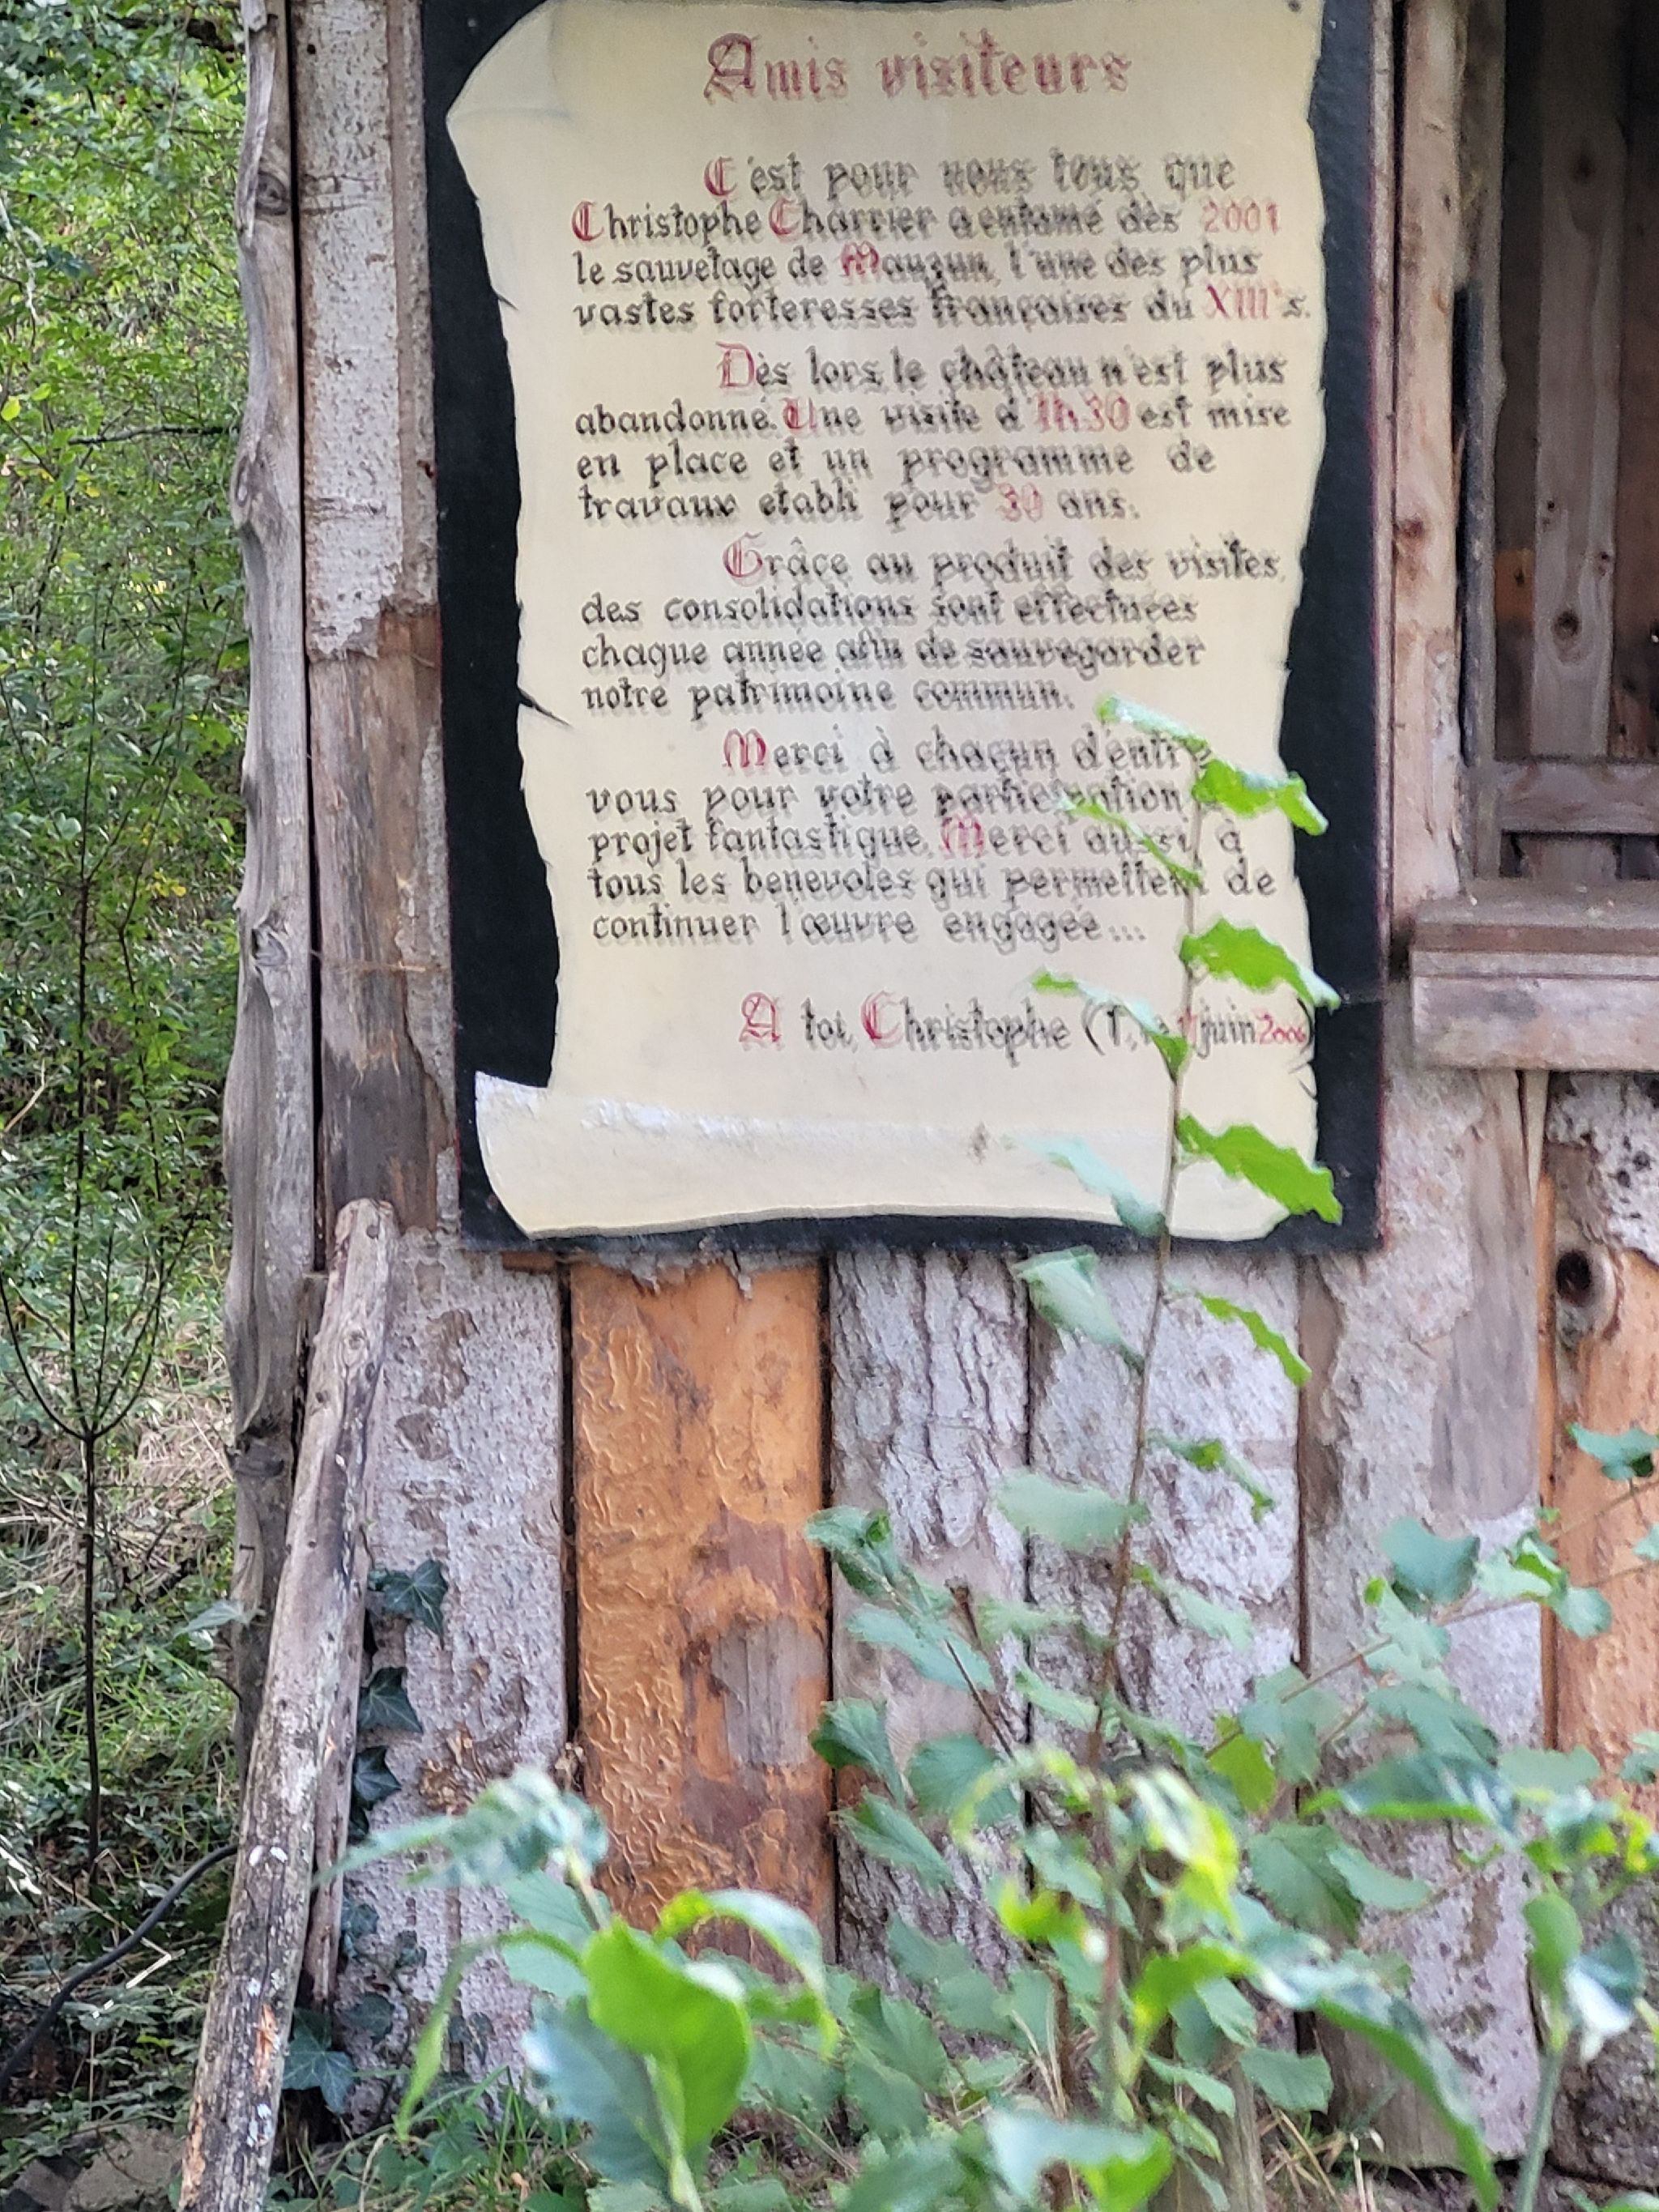 Amis visiteurs
C'est pour nous tous que
Christophe Charrier a entamé dès 2001
le sauvetage de Mauzun, l'une des plus
vastes forteresses françaises du XIIIe s.
Dès lors, le château n'est plus
abandonné. Une visite d'1h30 est mise
en place et un programme de
travaux etabli pour 30 ans.
Grâce au produit des visites,
des consolidations sont effectuées
chaque année afin de sauvegarder
notre patrimoine commun.
Merci à chacun d'entre
vous pour votre participation
projet fantastique. Merci aussi à
tous les benevoles qui permettent de
continuer l'œuvre engagée...
A toi, Christophe ( juin 2006)